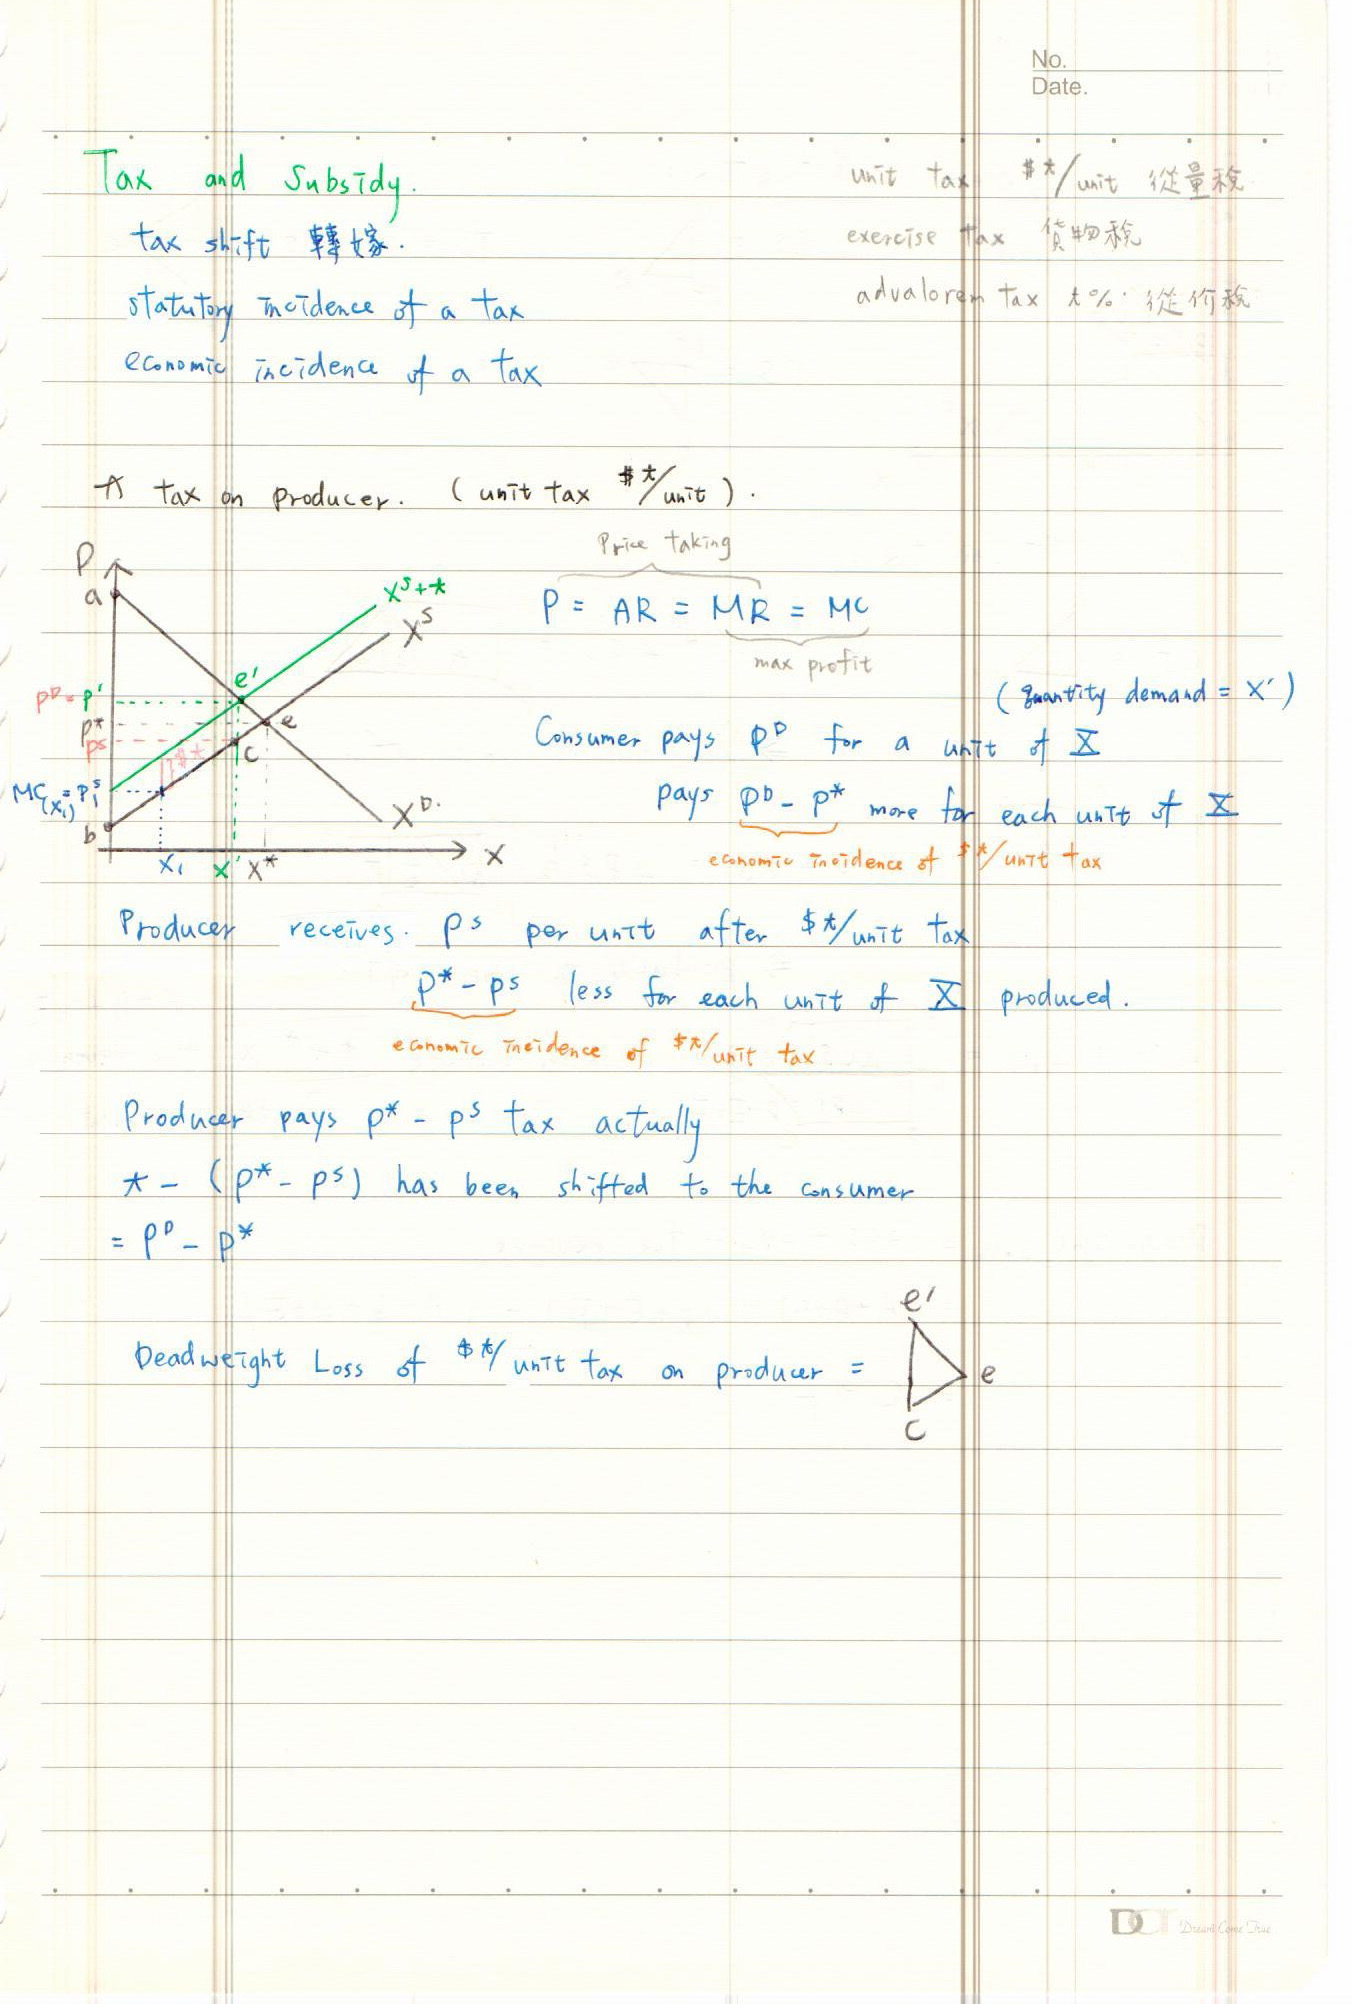 No.
Date.
Tax and Subsidy.
unit tax $t/unit 從量稅
tax shift 轉嫁.
exercise tax 貨物稅
statutory incidence of a tax
advalorem tax t% 從价稅
economic incidence of a tax
A tax on producer. (unit tax $t/unit).
Price taking
P = AR = MR = MC
max profit
P
a
X^S+t
X^S
e'
P^D = P'
P*
e
P^S
$t
c
MC(X₁) = P₁^S
b
X^D.
X₁ X' X* X
(quantity demand = X')
Consumer pays P^D for a unit of X
pays P^D - P* more for each unit of X
economic incidence of $t/unit tax
Producer receives. P^S per unit after $t/unit tax
P* - P^S less for each unit of X produced.
economic incidence of $t/unit tax
Producer pays P* - P^S tax actually
t - (P* - P^S) has been shifted to the consumer
= P^D - P*
Deadweight Loss of $t/unit tax on producer =
e'
e
c
DCT Dream Come True